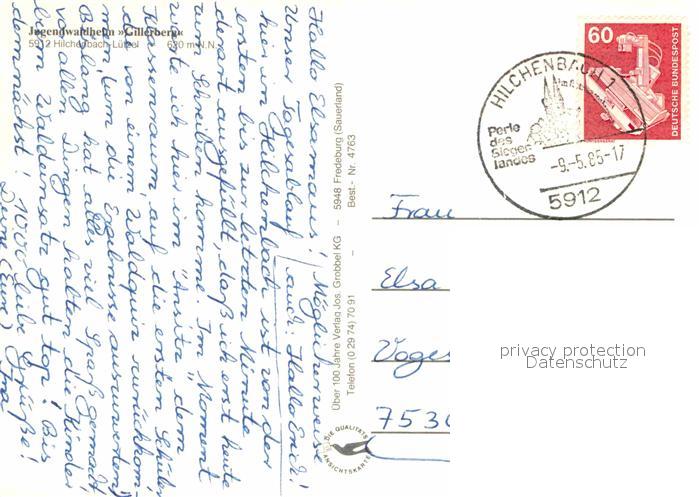 Jugendwaldheim »Gillerberg«
5912 Hilchenbach-Lützel 620 m ü.N.N.
Hallo Elsamaus! (Möglicherweise
Unser Tagesablauf auch: Hallo Erich!
hier in Hilchenbach ist von der
ersten bis zur letzten Minute
derart ausgefüllt, daß ich erst heute
zum Schreiben komme. Im "Moment"
warte ich hier im "Ansitz" dem
Klassenraum, auf die ersten Schüler,
die von einem Waldquiz zurückkom-
men, um die Ergebnisse auszuwerten.
Bislang hat alles viel Spaß gemacht,
vor allen Dingen halten die Kinder
beim Waldeinsatz gut top! Bis
demnächst! 1000 liebe Grüße!
Deine (Eure)
Über 100 Jahre Verlag Jos. Grobbel KG – 5948 Fredeburg (Sauerland)
Telefon (0 29 74) 70 91 – Best.- Nr. 4763
DIE QUALITÄTS
ANSICHTSKARTE
60
DEUTSCHE BUNDESPOST
HILCHENBACH 1
Perle
des
Sieger
landes
-9.-5.85-17
5912
Frau
Elsa
Voges
753
privacy protection
Datenschutz